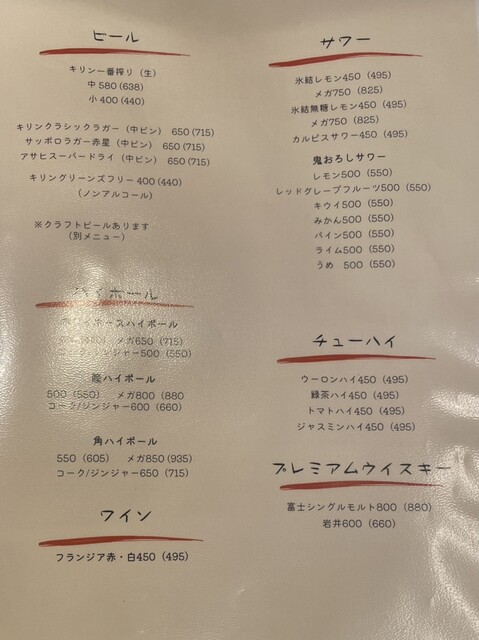 ビール
キリン一番搾り（生）
中580（638）
小400（440）
キリンクラシックラガー（中ビン） 650（715）
サッポロラガー赤星（中ビン） 650（715）
アサヒスーパードライ（中ビン） 650（715）
キリングリーンズフリー400（440）
（ノンアルコール）
※クラフトビールあります
（別メニュー）
ハイボール
ホワイトホースハイボール
メガ650（715）
コーク/ジンジャー500（550）
陸ハイボール
500（550） メガ800（880）
コーク/ジンジャー600（660）
角ハイボール
550（605） メガ850（935）
コーク/ジンジャー650（715）
ワイン
フランジア赤・白450（495）
サワー
氷結レモン450（495）
メガ750（825）
氷結無糖レモン450（495）
メガ750（825）
カルピスサワー450（495）
鬼おろしサワー
レモン500（550）
レッドグレープフルーツ500（550）
キウイ500（550）
みかん500（550）
パイン500（550）
ライム500（550）
うめ 500（550）
チューハイ
ウーロンハイ450（495）
緑茶ハイ450（495）
トマトハイ450（495）
ジャスミンハイ450（495）
プレミアムウイスキー
富士シングルモルト800（880）
岩井600（660）